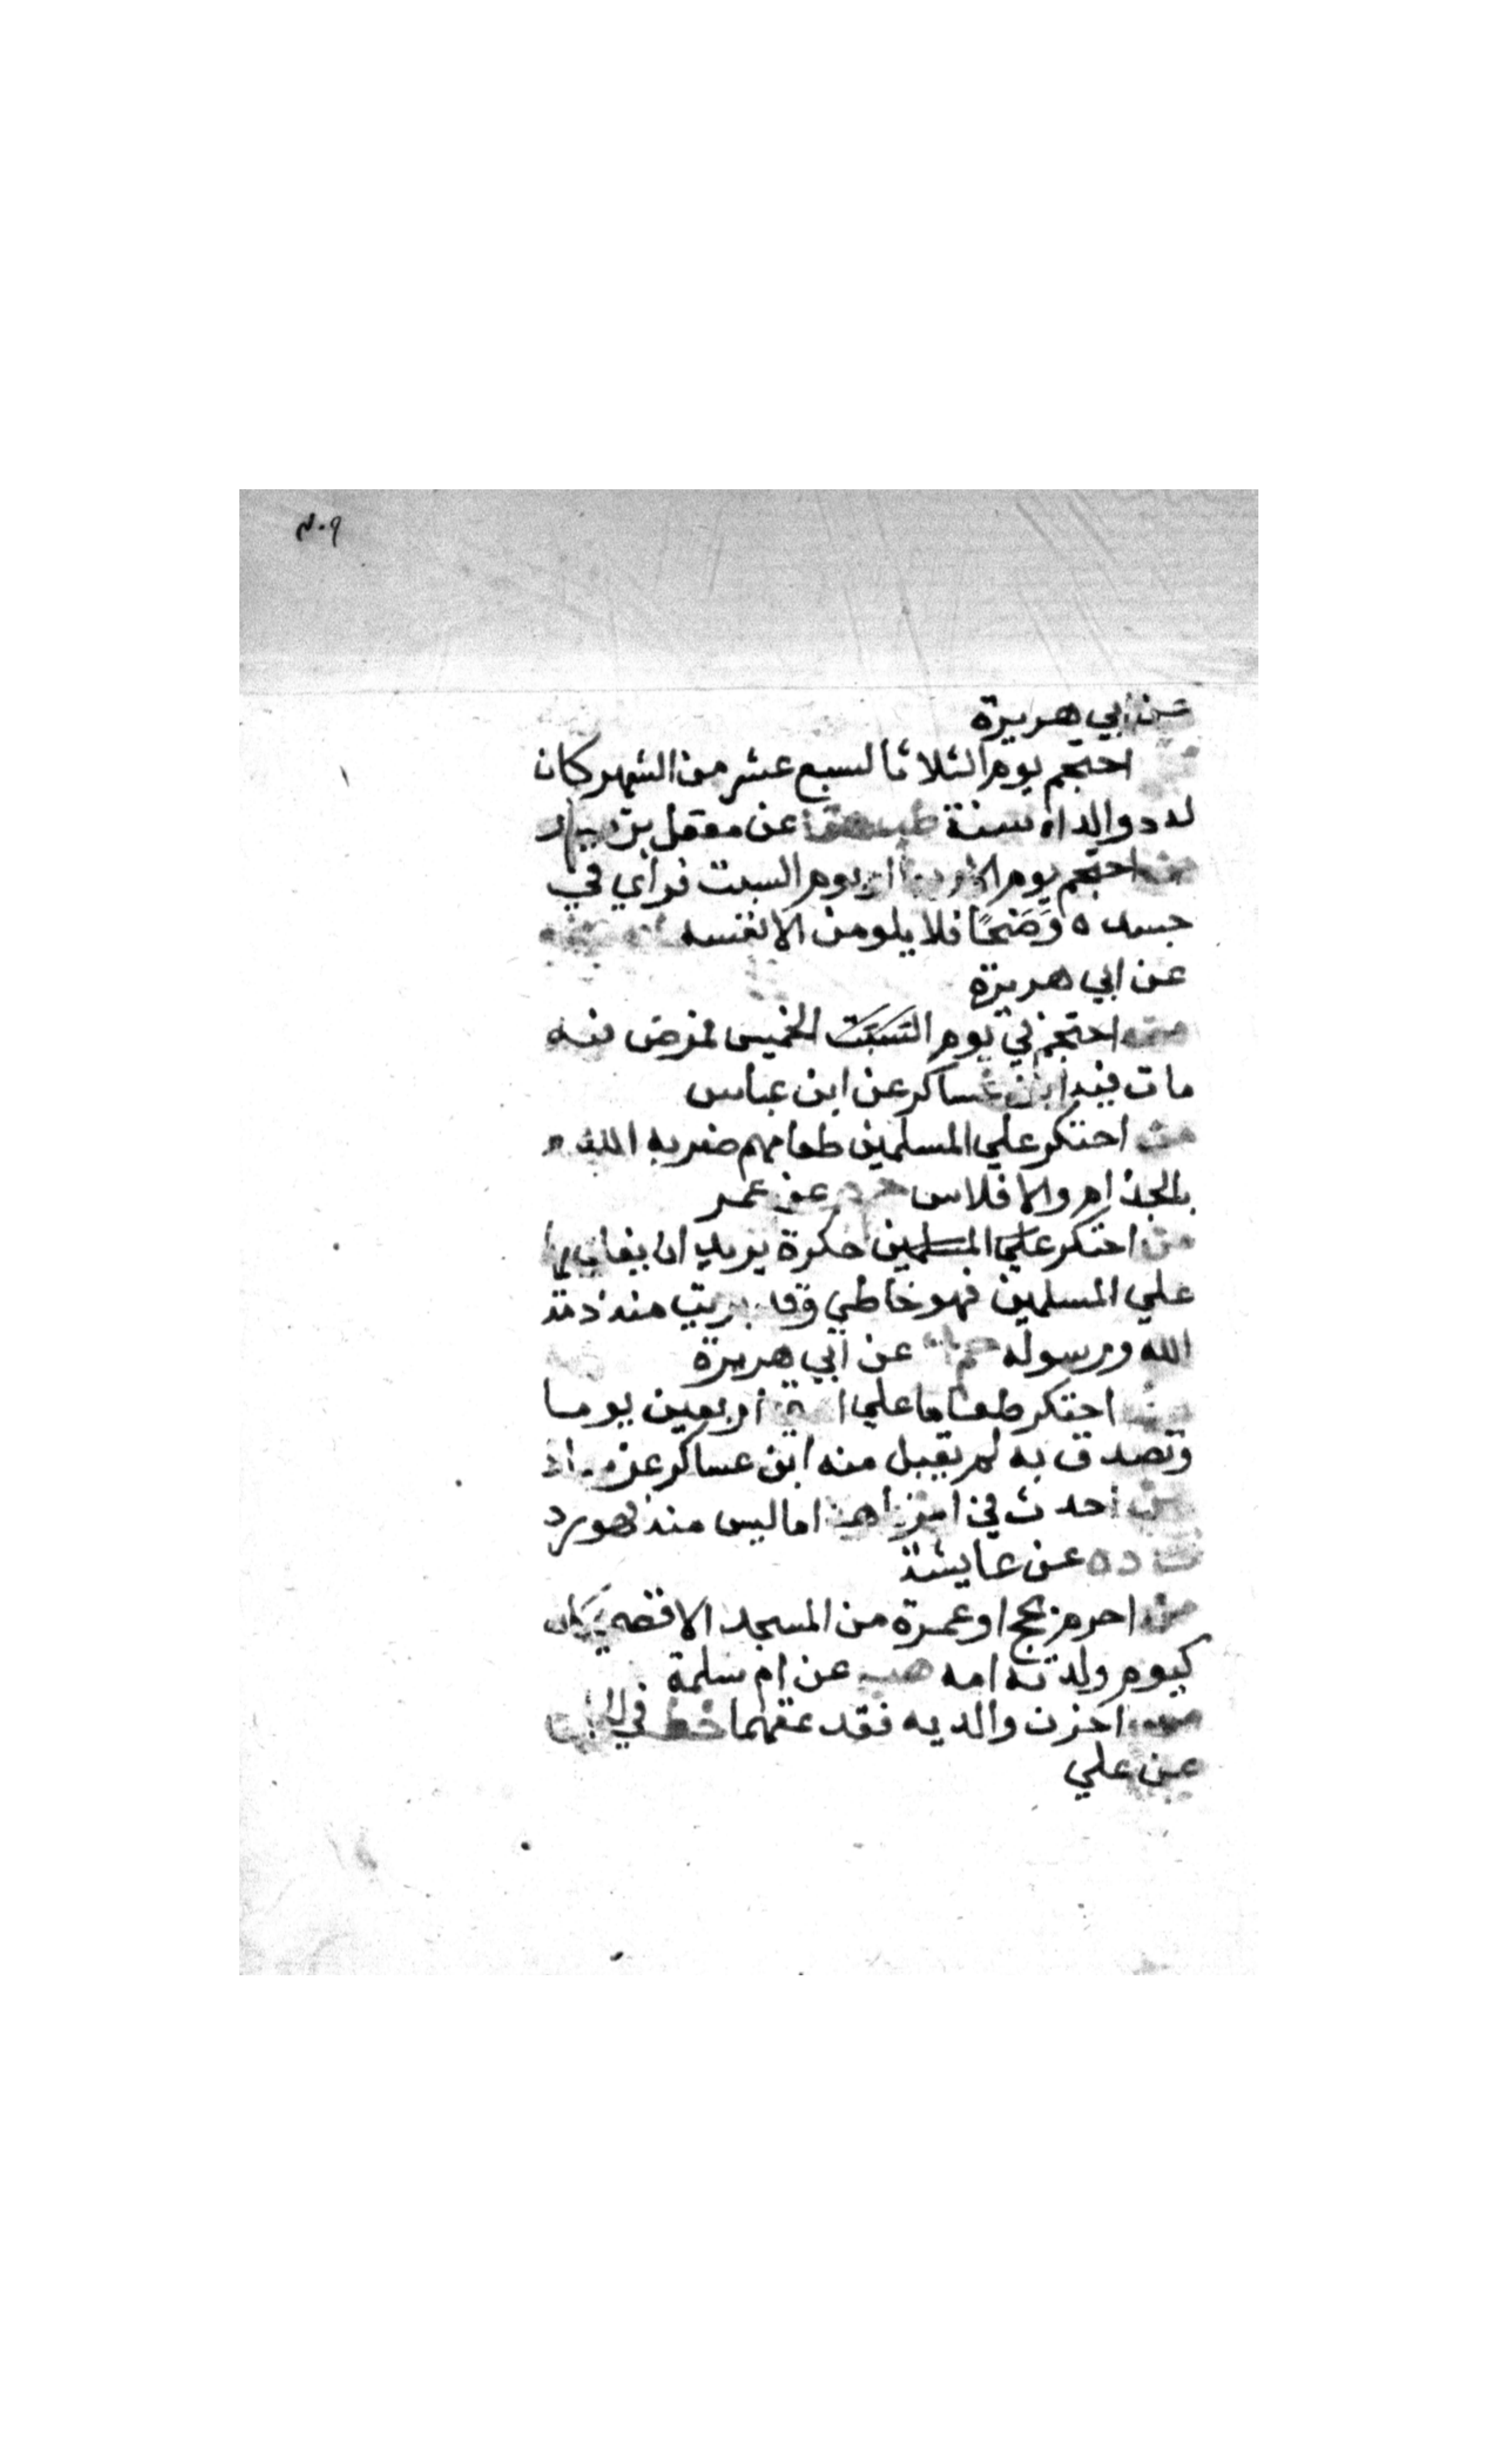 ٣٠٩
عن ابي هريرة
احتجم يوم الثلاثا لسبع عشر من الشهر كان
له دوا لداء سنة طب هق عن معقل بن يسار
من احتجم يوم الاربعا او يوم السبت فرأي في
جسده وَضَحًا فلا يلومن الا نفسه
عن ابي هريرة
من احتجم في يوم السبت الخميس فمرض فيه
مات فيه ابن عساكر عن ابن عباس
من احتكر علي المسلمين طعامهم ضربه الله
بالجذام والافلاس عن عمر
من احتكر علي المسلمين حكرة يريد ان يغلي بها
علي المسلمين فهو خاطي وقد بريت منه ذمة
الله ورسوله حم عن ابي هريرة
من احتكر طعاما علي اربعين يوما
وتصدق به لم يقبل منه ابن عساكر عن معاذ
من احدث في امرنا هذا ما ليس منه فهو رد
ق د ه عن عايشة
من احرم بحج او عمرة من المسجد الاقصي كان
كيوم ولدته امه هب عن ام سلمة
من احزن والديه فقد عقهما خط في
عن علي